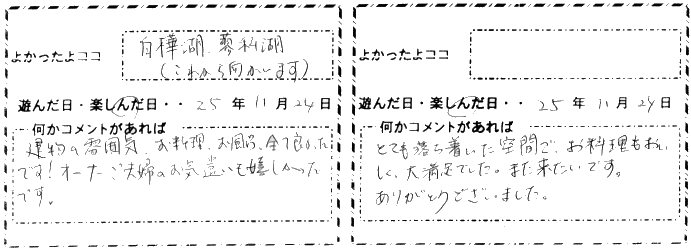 よかったよココ
白樺湖、蓼科湖
(これから向かいます)
遊んだ日・楽しんだ日・・ 25 年 11 月 24 日
何かコメントがあれば
建物の雰囲気、お料理、お風呂、全て良かった
です!オーナーご夫婦のお気遣いも嬉しかった
です。
よかったよココ
遊んだ日・楽しんだ日・・ 25 年 11 月 24 日
何かコメントがあれば
とても落ち着いた空間で、お料理もおい
しく、大満足でした。また来たいです。
ありがとうございました。